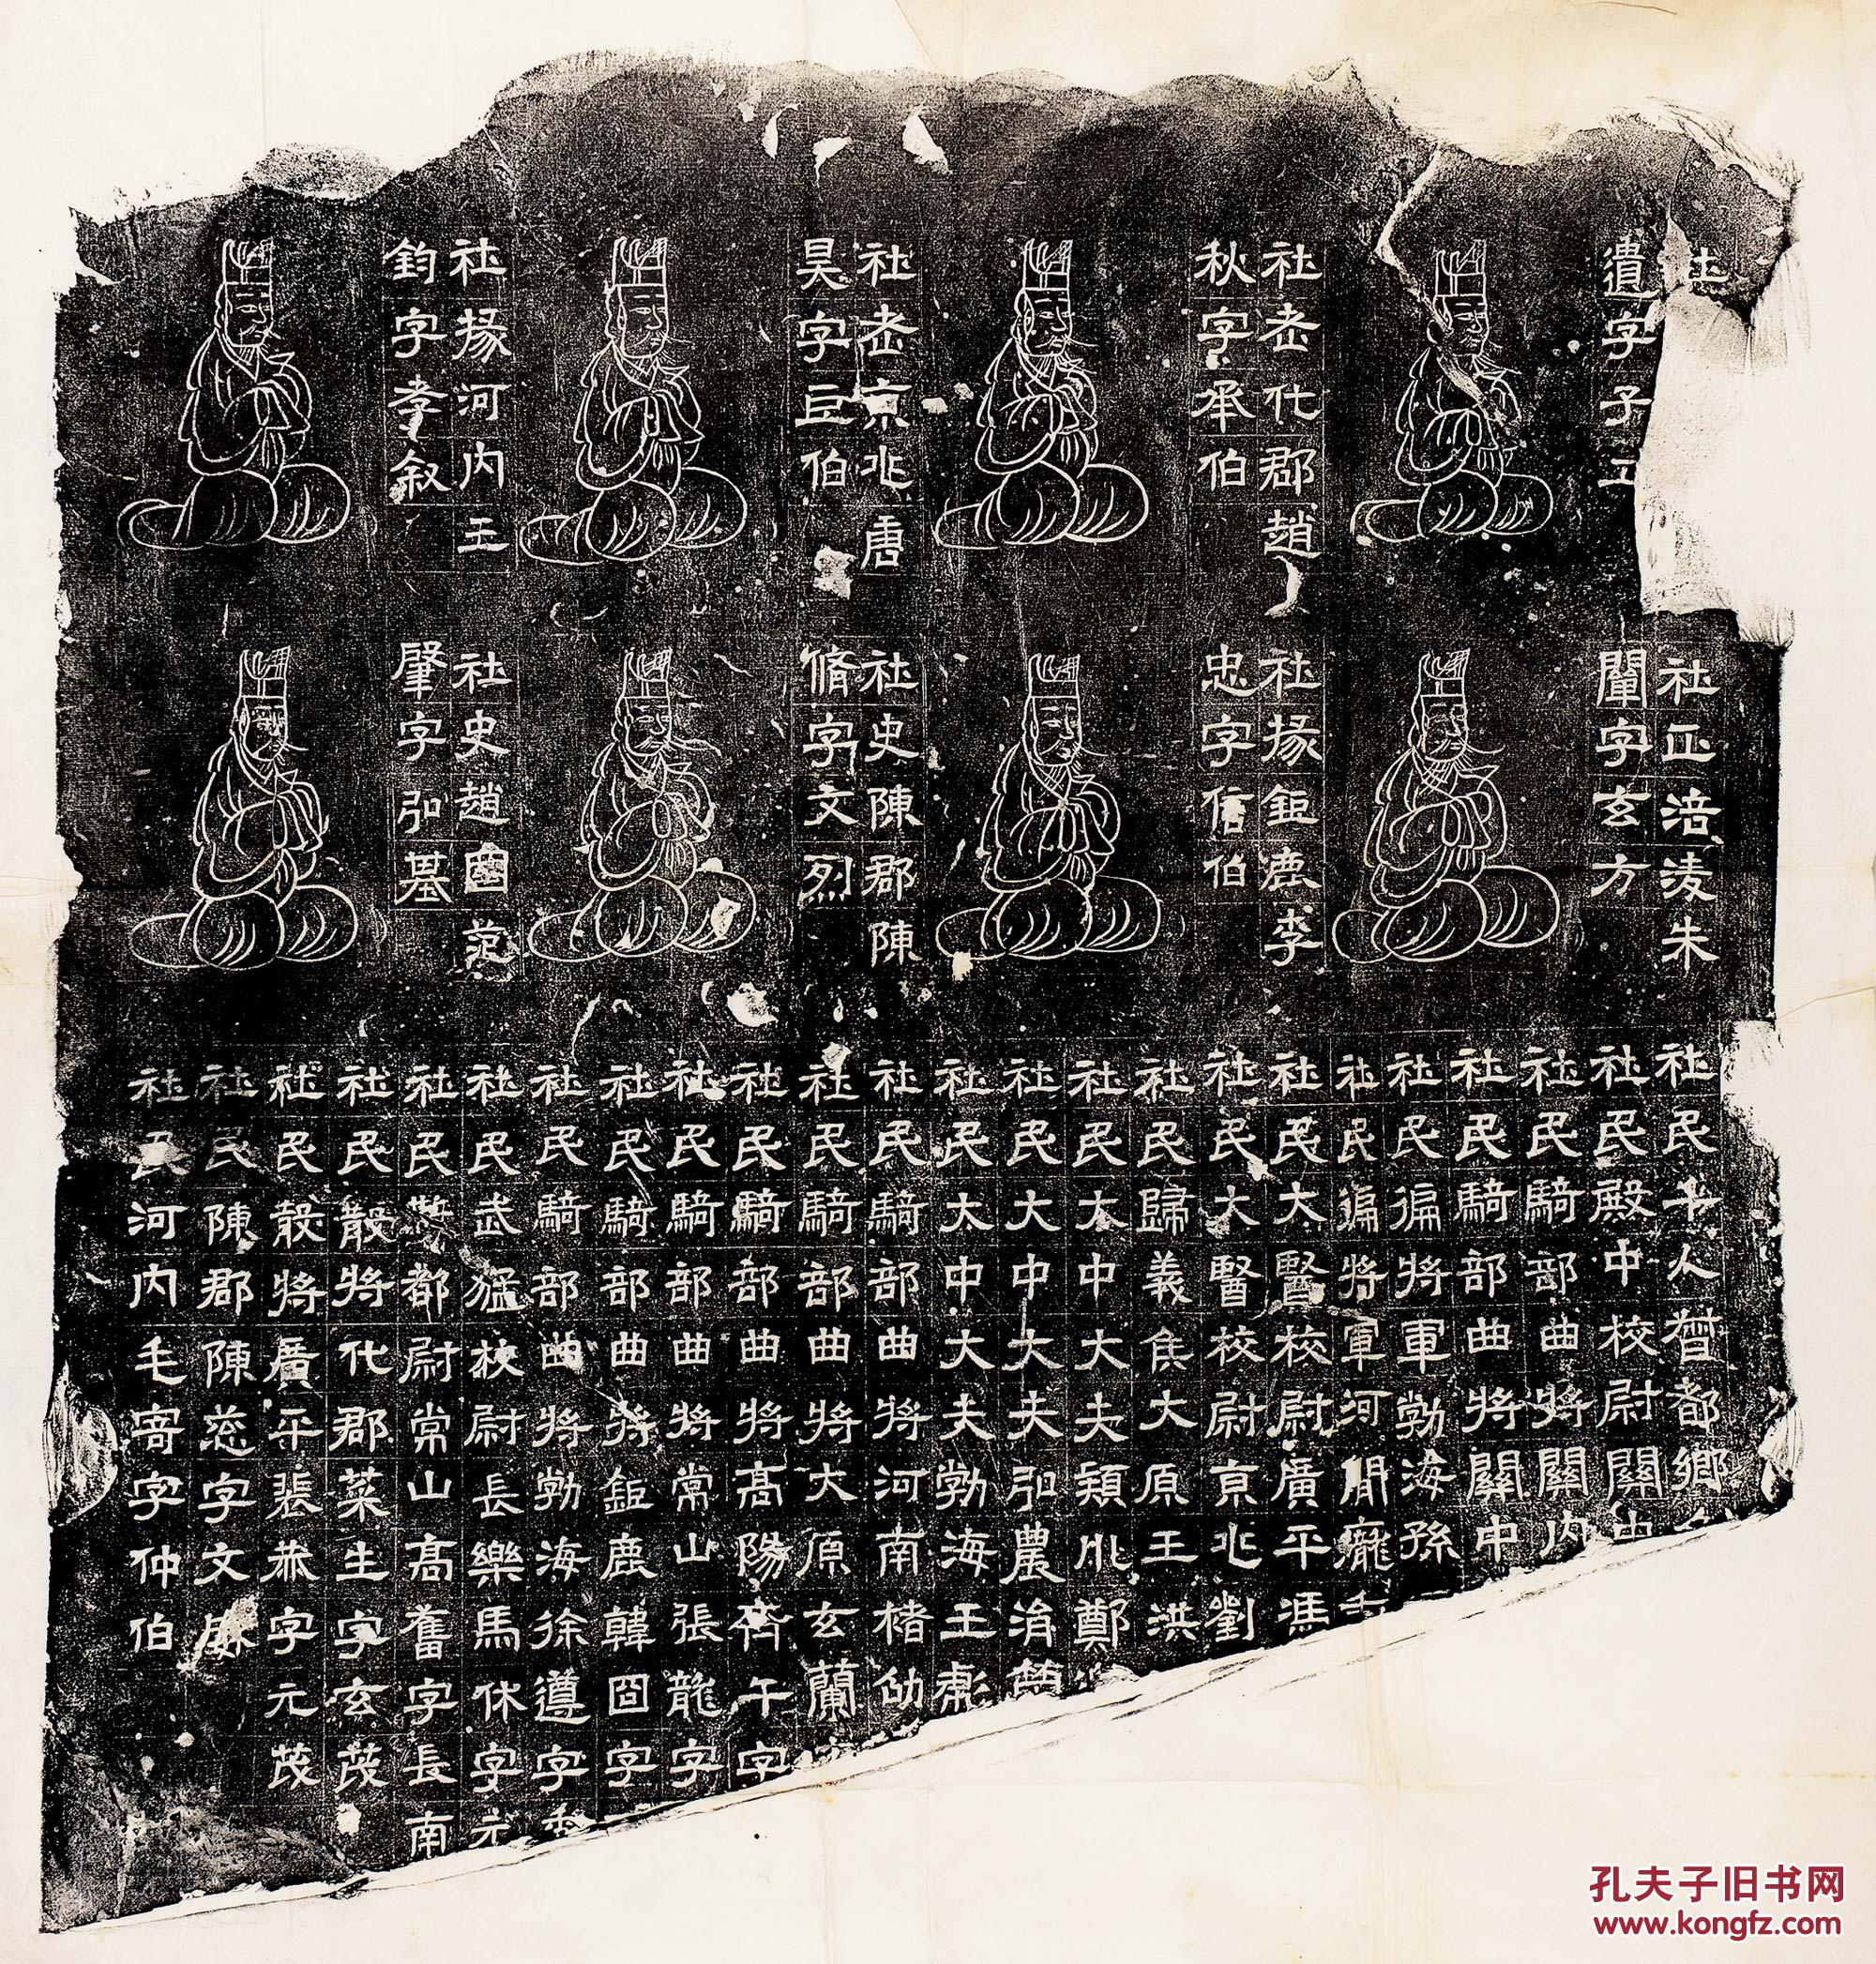 社
遺字子
社老代郡趙
秋字承伯
社老京兆唐
昊字巨伯
社掾河内王
鈞字孝叙
社正涪凌朱
闡字玄方
社掾鉅鹿李
忠字信伯
社史陳郡陳
脩字文烈
社史趙國范
肇字弘基
社民千人督都鄉
社民殿中校尉關中
社民騎部曲將關内
社民騎部曲將關中
社民偏將軍勃海孫
社民偏將軍河間龐
社民大醫校尉廣平馮
社民大醫校尉京兆劉
社民歸義侯大原王洪
社民大中大夫潁川鄭
社民大中大夫弘農涓
社民大中大夫勃海王彪
社民騎部曲將河南楮劭
社民騎部曲將大原玄蘭
社民騎部曲將高陽齊午字
社民騎部曲將常山張龍字
社民騎部曲將鉅鹿韓囧字
社民騎部曲將勃海徐遵字
社民武猛校尉長樂馬休字元
社民都尉常山高奮字長南
社民散將代郡萊生字玄茂
社民散將廣平裴恭字元茂
社民陳郡陳慈字文
社民河内毛寄字仲伯
孔夫子旧书网
www.kongfz.com